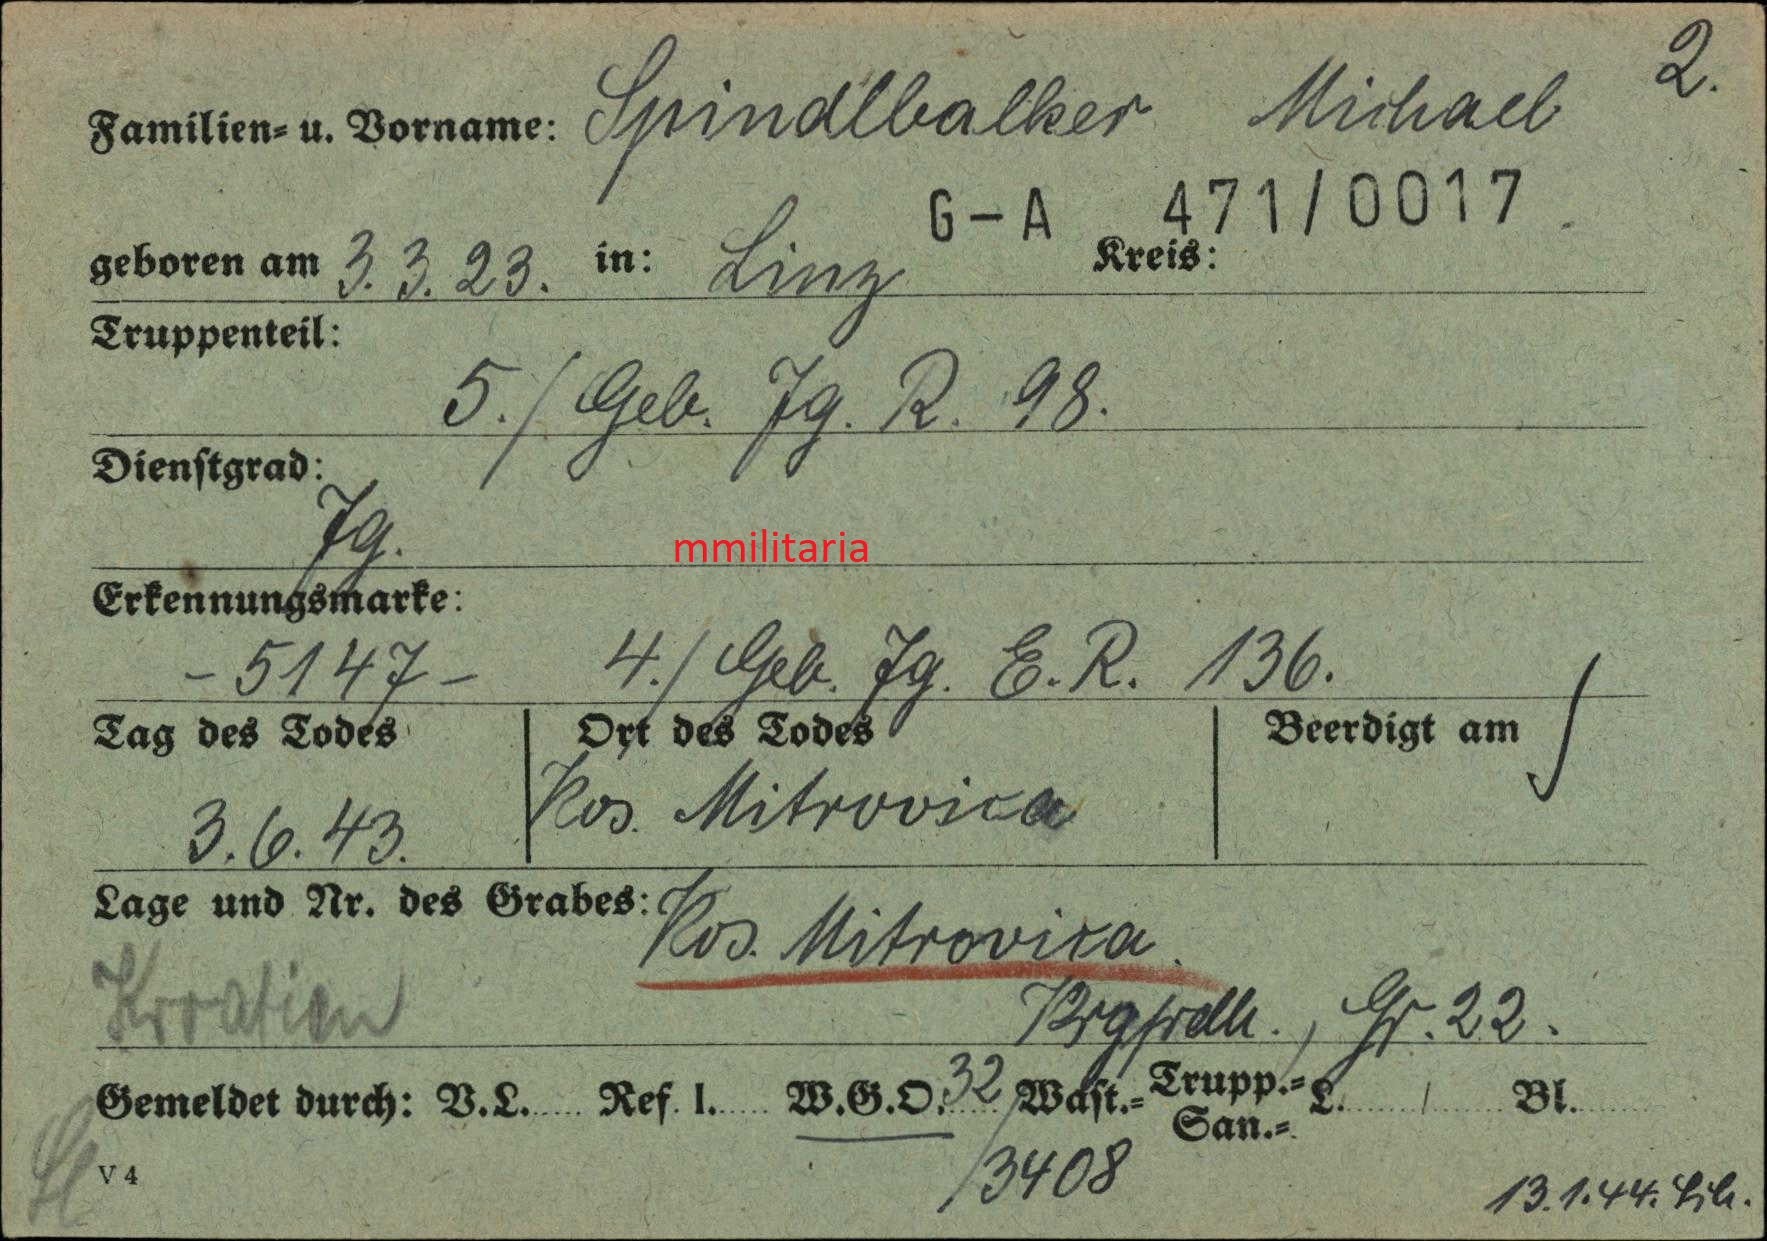 2.
Familien- u. Vorname: Spindlbalker Michael
G-A 471/0017
geboren am 3.3.23. in: Linz Kreis:
Truppenteil:
5./Geb. Jg. R. 98.
Dienstgrad:
Jg.
mmilitaria
Erkennungsmarke:
-5147- 4./Geb. Jg. E.R. 136.
Tag des Todes Ort des Todes Beerdigt am
3.6.43. Kos. Mitrovica
Lage und Nr. des Grabes: Kos. Mitrovica.
Kroatien Krgfrdh., Gr. 22.
Gemeldet durch: V.L. Ref. I. W.G.O. 32 Wast.- Trupp.- San.- L. / Bl.
/3408
V 4
13.1.44.